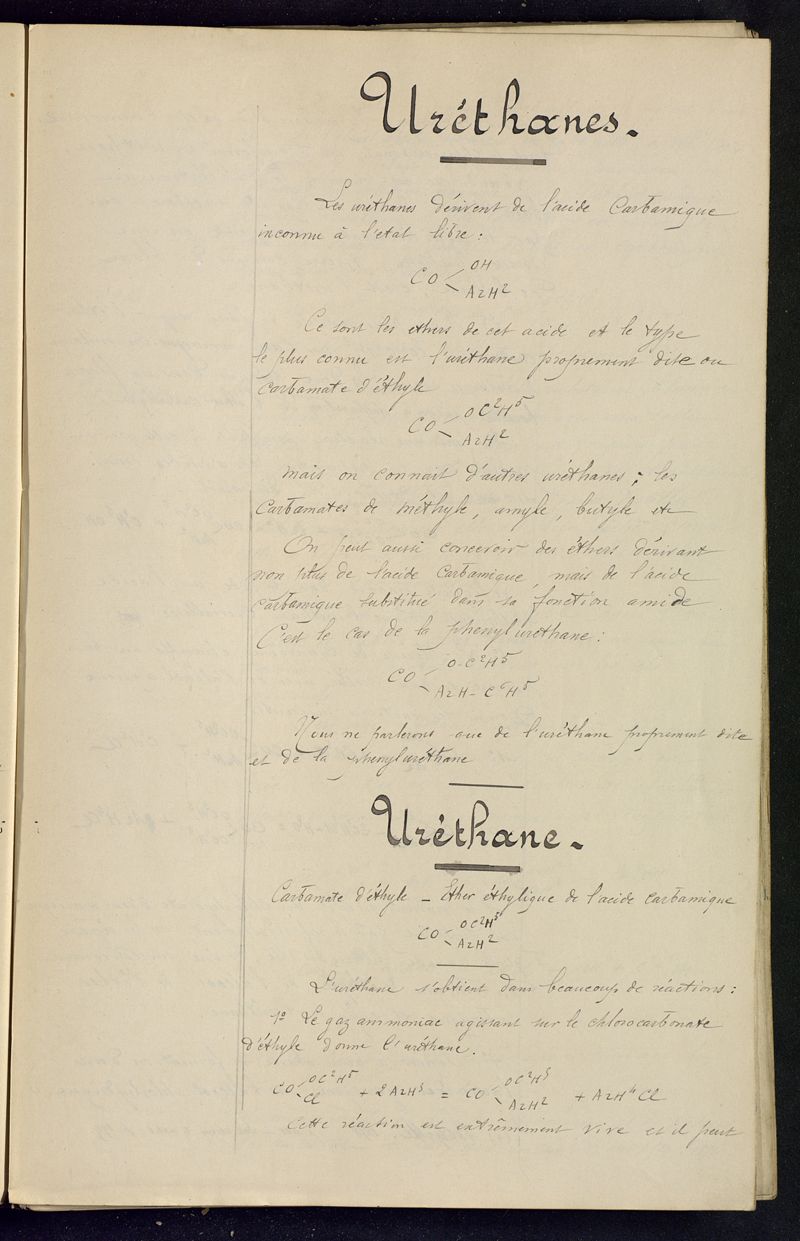 Uréthanes.
Les uréthanes dérivent de l'acide Carbamique
inconnu à l'etat libre :
CO
OH
AzH²
Ce sont les ethers de cet acide et le type
le plus connu est l'uréthane proprement dite ou
carbamate d'éthyle
CO
OC²H⁵
AzH²
mais on connait d'autres uréthanes ; les
carbamates de méthyle, amyle, butyle etc
On peut aussi concevoir des éthers dérivant
non plus de l'acide carbamique, mais de l'acide
carbamique substitué dans sa fonction amide
C'est le cas de la phenyluréthane :
CO
O-C²H⁵
AzH-C⁶H⁵
Nous ne parlerons que de l'uréthane proprement dite
et de la phenyluréthane
Uréthane.
Carbamate d'éthyle - Ether éthylique de l'acide carbamique
CO
OC²H⁵
AzH²
L'uréthane s'obtient dans beaucoup de réactions :
1º Le gaz ammoniac agissant sur le chlorocarbonate
d'éthyle donne l'uréthane.
CO
OC²H⁵
Cl
+ 2AzH³ = CO
OC²H⁵
AzH²
+ AzH⁴Cl
Cette réaction est extrêmement vive et il peut